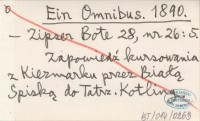 Ein Omnibus. 1890.
- Zipser Bote 28, nr 26:5.
Zapowiedź kursowania
z Kiezmarku przez Białą
Spiską do Tatrz. Kotliny
HJ/014/0268